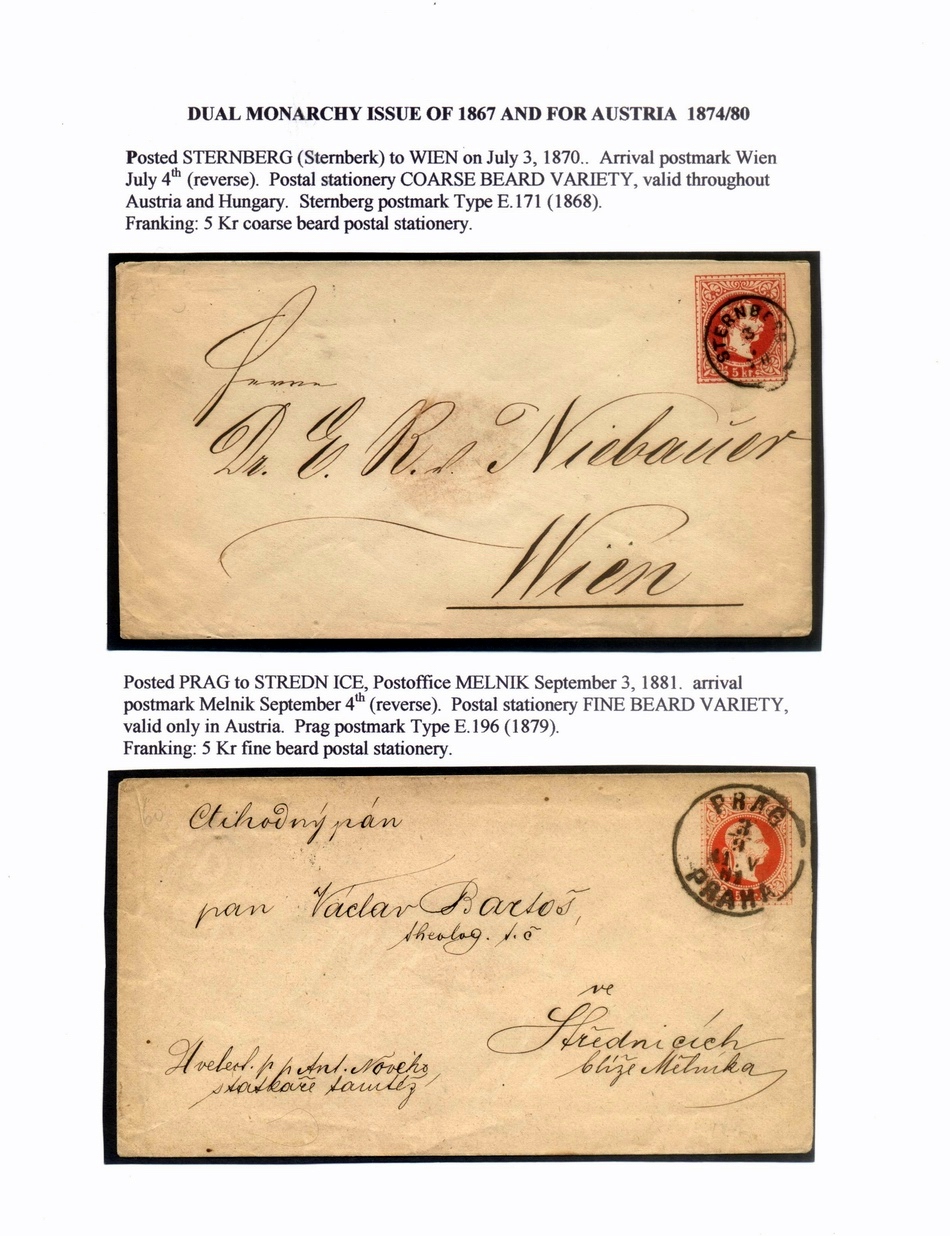 DUAL MONARCHY ISSUE OF 1867 AND FOR AUSTRIA 1874/80
Posted STERNBERG (Sternberk) to WIEN on July 3, 1870.. Arrival postmark Wien
July 4th (reverse). Postal stationery COARSE BEARD VARIETY, valid throughout
Austria and Hungary. Sternberg postmark Type E.171 (1868).
Franking: 5 Kr coarse beard postal stationery.
STERNBERG
3
5 kr.
Herrn
Dr. E. R. v. Niebauer
Wien
Posted PRAG to STREDN ICE, Postoffice MELNIK September 3, 1881. arrival
postmark Melnik September 4th (reverse). Postal stationery FINE BEARD VARIETY,
valid only in Austria. Prag postmark Type E.196 (1879).
Franking: 5 Kr fine beard postal stationery.
PRAG
3
9
V
81
PRAHA
Ctihodný pán
pan Václav Bartoš,
theolog. t.č
ve
Střednicích
blíže Mělníka
p p Ant. Nového,
statkáře tamtéž